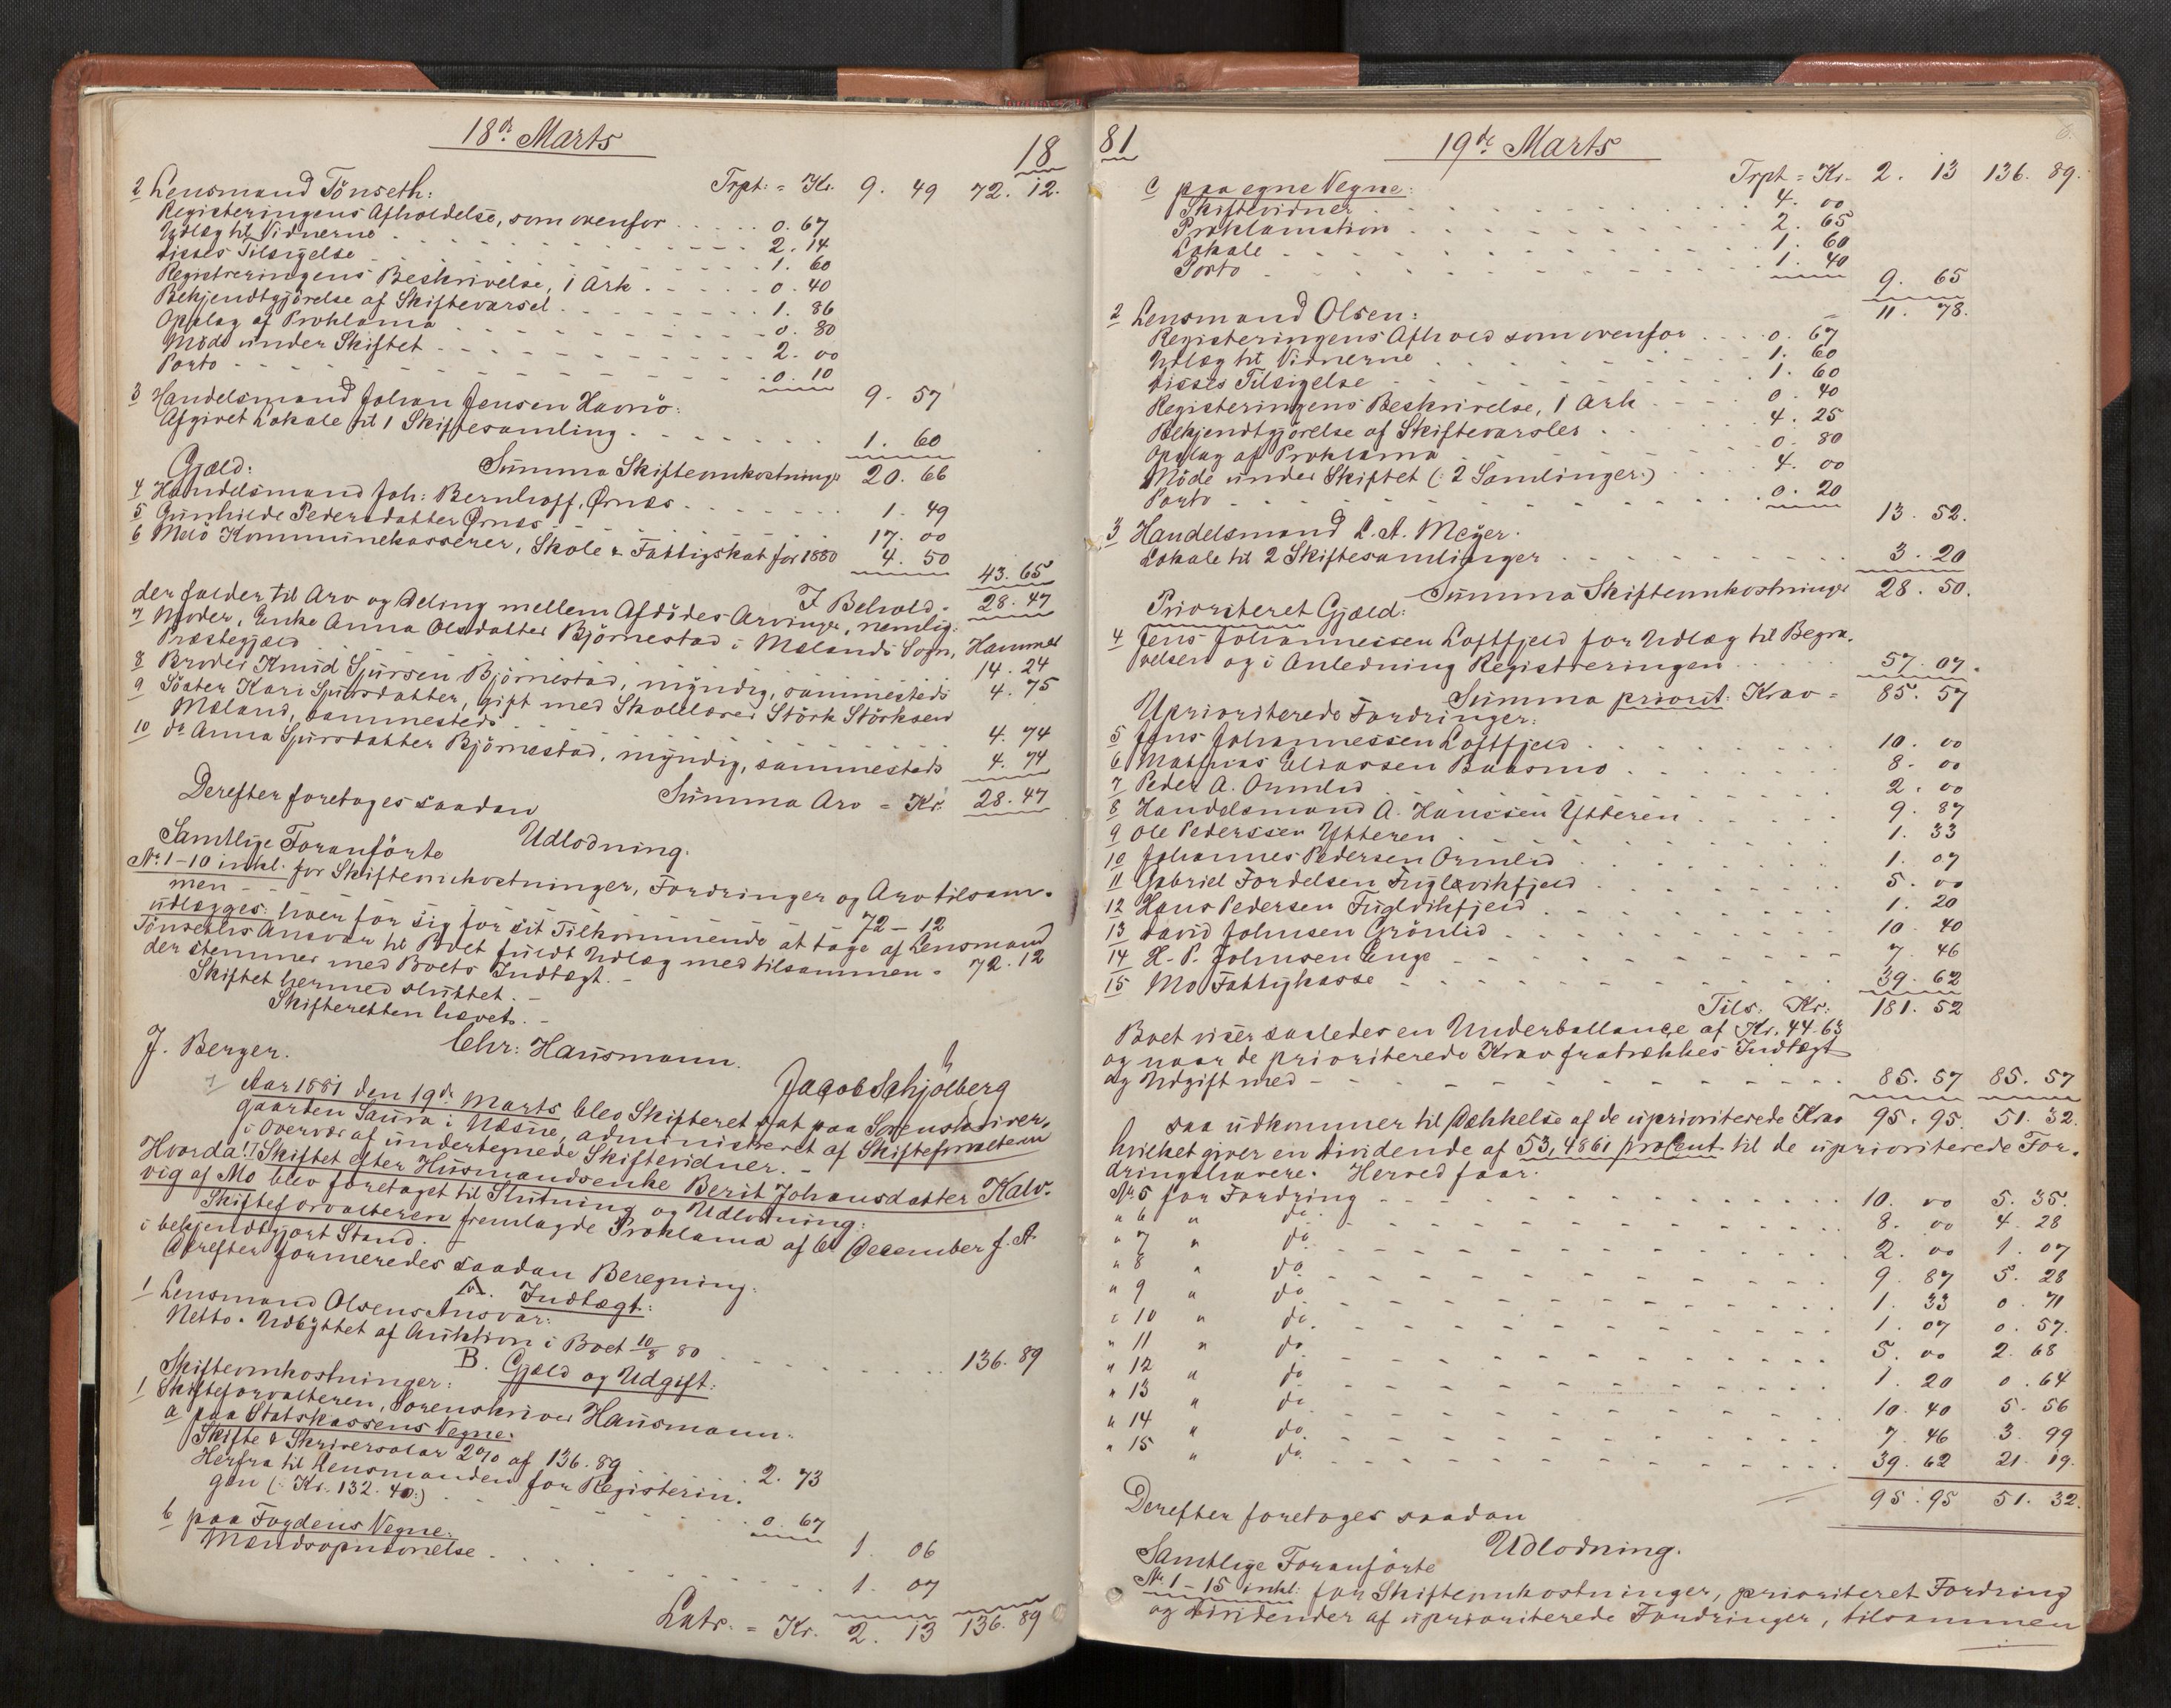 18de Marts
18
Trpt: = Kr. 9. 49 72. 12.
2 Lensmand Tönseth:
Registeringens Afholdelse, som ovenfor . . . . . 0. 67
Udlæg til Vidnerne . . . . . 2. 14
disses Tilsigelse . . . . . 1. 60
Registreringens Beskrivelse, 1 Ark . . . . . 0. 40
Bekjendtgjörelse af Skiftevarsel . . . . . 1. 86
Opslag af Proklama . . . . . 0. 80
Möde under Skiftet . . . . . 2. 00
Porto . . . . . 0. 10
9. 57
3 Handelsmand Johan Jensen Havnö:
Afgivet Lokale til 1 Skiftesamling . . . . . 1. 60
Summa Skifteomkostninger 20. 66
Gjæld:
4 Handelsmand Joh: Bernhoff, Ørnæs . . . . . 1. 49
5 Gunhilde Pedersdatter Ørnæs . . . . . 17. 00
6 Melö Kommunekasserer, Skole & Fattigskat for 1880 4. 50
43. 65
I Behold = 28. 47
der falder til Arv og Deling mellem Afdödes Arvinger, nemlig:
7 Moder, Enke Anna Olsdatter Björnestad i Mælands Sogn, Hammer
Præstegjeld . . . . . 14. 24
8 Broder Knud Sjursen Björnestad, myndig, sammesteds 4. 75
9 Söster Kari Sjursdatter, gift med Skolelærer Störk Störksen
Mæland, sammesteds . . . . . 4. 74
10 do Anna Sjursdatter Björnestad, myndig, sammesteds 4. 74
Summa Arv = Kr. 28. 47
Derefter foretages saadan
Udlodning.
Samtlige Foranförte
No. 1-10 inkl. for Skifteomkostninger, Fordringer og Arv tilsam-
men . . . . . 72 - 12
udlægges: hver for sig for sit Tilkommende at tage af Lensmand
Tönseths Ansvar til Boet fuldt Udlæg med tilsammen = 72. 12
der stemmer med Boets Indtægt. -
Skiftet hermed sluttet. -
Skifteretten hævet. -
Chr: Hausmann.
J. Berger.
Jacob Schjölberg
Aar 1881 den 19de Marts blev Skifteret sat paa Sorenskriver-
gaarden Saura i Næsne, administreret af Skifteforvalteren
i Overvær af undertegnede Skiftevidner. -
Hvorda: Skiftet efter Husmandsenke Berit Johansdatter Kalv-
vig af Mo blev foretaget til Slutning og Udlodning:
Skifteforvalteren fremlagde Proklama af 6 December f. A.
i bekjendtgjort Stand. -
Derefter formeredes saadan Beregning:
A. Indtægt:
1 Lensmand Olsens Ansvar:
Netto-Udbyttet af Auktion i Boet 10/8 80 . . . . . 136. 89
B. Gjæld og Udgift:
Skifteomkostninger:
1 Skifteforvalteren, Sorenskriver Hausmann:
a paa Statskassens Vegne:
Skifte & Skriversalar 2% af 136. 89 . . . . . 2. 73
Herfra til Lensmanden for Registerin-
gen (: Kr. 132. 40:) . . . . . 0. 67
1. 06
b paa Fogdens Vegne:
Mændsopnævnelse . . . . . 1. 07
Latr. = Kr. 2. 13 136. 89
81
19de Marts
Trpt = Kr. 2. 13 136. 89.
c paa egne Vegne:
Skiftevidner . . . . . 4. 00
Proklamation . . . . . 2. 65
Lokale . . . . . 1. 60
Porto . . . . . 1. 40
9. 65
11. 78.
2 Lensmand Olsen:
Registeringens Afhold som ovenfor . . . . . 0. 67
Udlæg til Vidnerne . . . . . 1. 60
disses Tilsigelse . . . . . 1. 60
Registeringens Beskrivelse, 1 Ark . . . . . 0. 40
Bekjendtgjörelse af Skiftevarsler . . . . . 4. 25
Opslag af Proklama . . . . . 0. 80
Möde under Skiftet (: 2 Samlinger:) . . . . . 4. 00
Porto . . . . . 0. 20
13. 52.
3 Handelsmand L. A. Meyer.
Lokale til 2 Skiftesamlinger . . . . . 3. 20
Summa Skifteomkostninger 28. 50.
Prioriteret Gjæld:
4 Jens Johannessen Loftfjeld for Udlæg til Begra-
velsen og i Anledning Registreringen . . . . . 57. 07.
Summa priorit: Krav = 85. 57
Uprioriterede Fordringer:
5 Jens Johannessen Loftfjeld . . . . . 10. 00
6 Mathias Eliassen Baasmo . . . . . 8. 00
7 Peder A. Ormlid . . . . . 2. 00
8 Handelsmand A. Hanssen Ytteren . . . . . 9. 87
9 Ole Pederssen Ytteren . . . . . 1. 33
10 Johannes Pedersen Ormlid . . . . . 1. 07
11 Gabriel Fordelsen Fuglevikfjeld . . . . . 5. 00
12 Hans Pedersen Fuglvikfjeld . . . . . 1. 20
13 David Johnsen Grönlid . . . . . 10. 40
14 H. P. Johnsen Enge . . . . . 7. 46
15 Mo Fattigkasse . . . . . 39. 62
Tils: Kr: 181. 52
Boet viser saaledes en Underballance af Kr. 44. 63
og naar de prioriterede Krav fratrækkes Indtægt
og Udgift med . . . . . 85. 57 85. 57
saa udkommer til Dækkelse af de uprioriterede Krav 95. 95. 51. 32.
hvilket giver en Dividende af 53,4861 procent til de uprioriterede For-
dringshavere. Herved faar:
No. 5 for Fordring . . . . . 10. 00 5. 35.
" 6 " do. . . . . . 8. 00 4. 28
" 7 " do . . . . . 2. 00 1. 07
" 8 " do . . . . . 9. 87 5. 28
" 9 " do . . . . . 1. 33 0. 71
" 10 " do. . . . . . 1. 07 0. 57.
" 11 " do . . . . . 5. 00 2. 68
" 12 " do . . . . . 1. 20 0. 64
" 13 " do . . . . . 10. 40 5. 56
" 14 " do. . . . . . 7. 46 3. 99
" 15 " do. . . . . . 39. 62 21. 19.
95. 95 51. 32.
Derefter foretages saadan
Udlodning.
Samtlige Foranförte
No. 1-15 inkl: for Skifteomkostninger, prioriteret Fordring
og Dividender af uprioriterede Fordringer, tilsammen